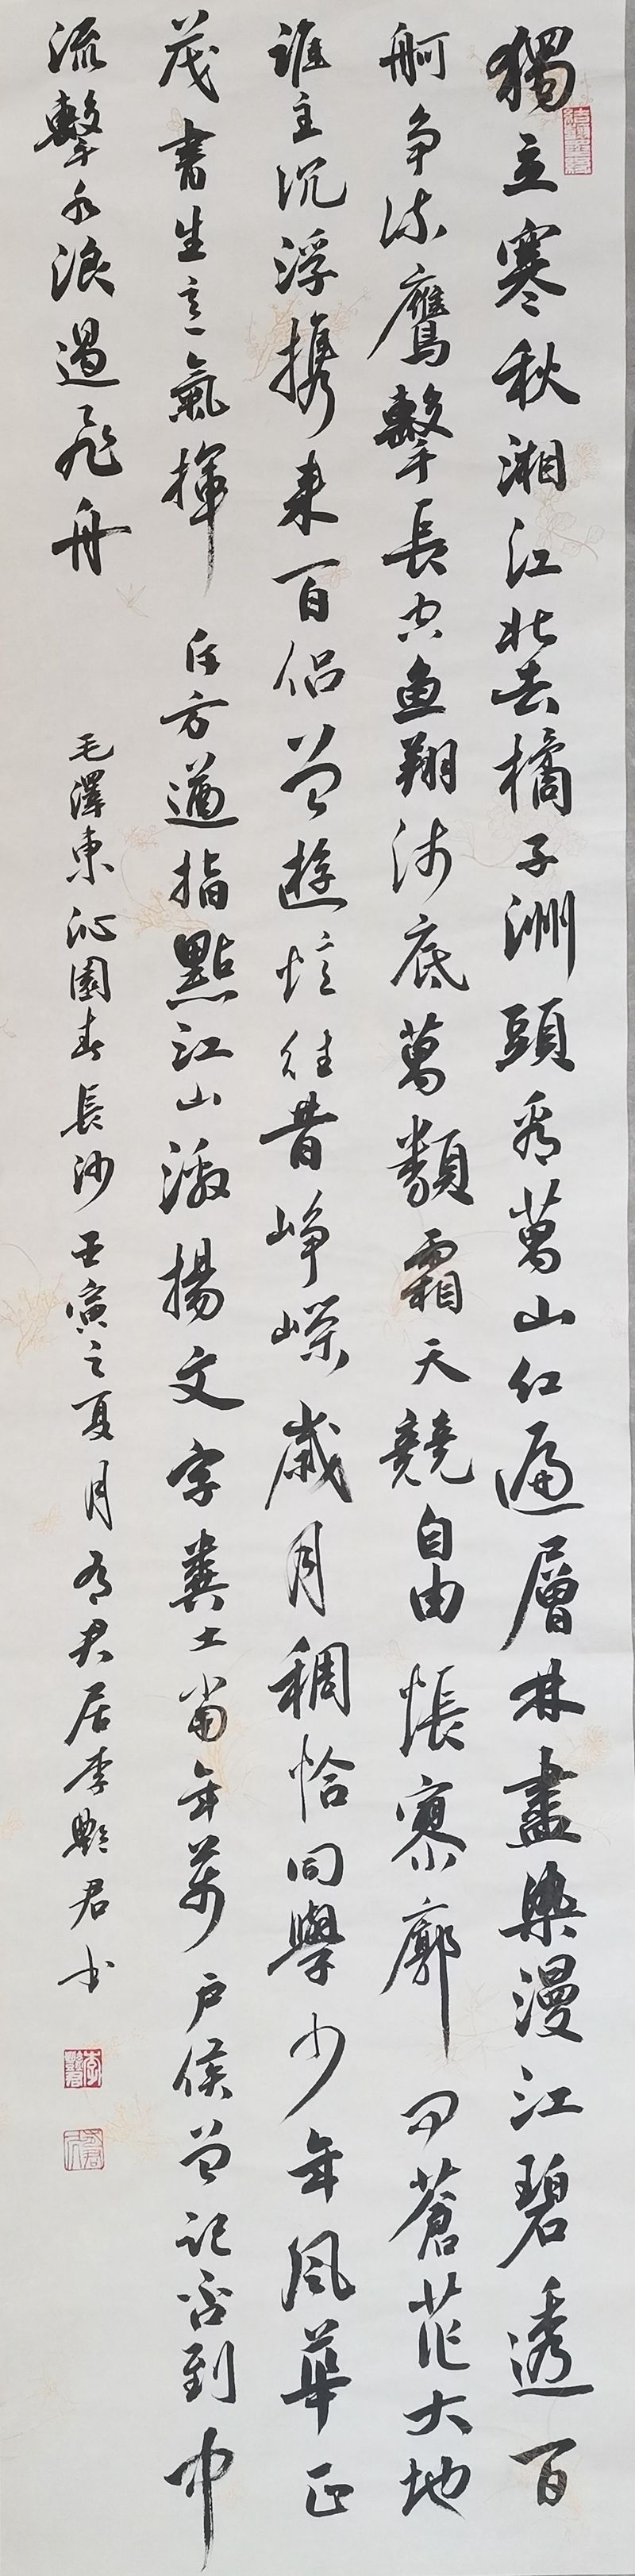 獨立寒秋湘江北去橘子洲頭看萬山紅遍層林盡染漫江碧透百
舸争流鷹擊長空魚翔淺底萬類霜天競自由悵寥廓問蒼茫大地
誰主沉浮攜来百侣曾遊憶往昔崢嶸歲月稠恰同學少年風華正
茂書生意氣揮斥方遒指點江山激揚文字糞土當年萬戶侯曾記否到中
流擊水浪遏飛舟
毛澤東沁園春長沙壬寅之夏月為君居李艷君書